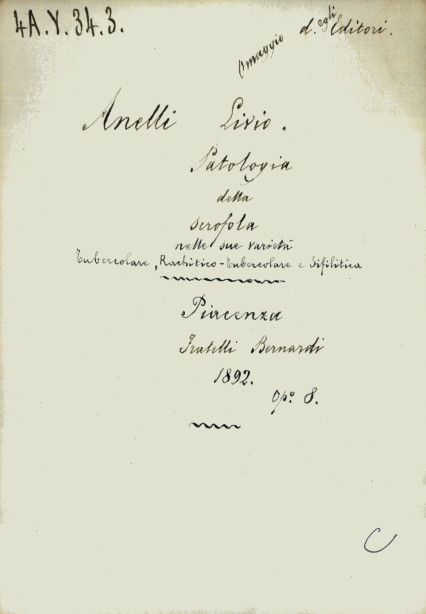 4A.Y.34.3.
Omaggio degli Editori.
Anelli Livio.
Patologia
della
scrofola
nelle sue varietà
Tubercolare, Rachitico-Tubercolare e Sifilitica
Piacenza
Fratelli Bernardi
1892.
Opo. 8.
C